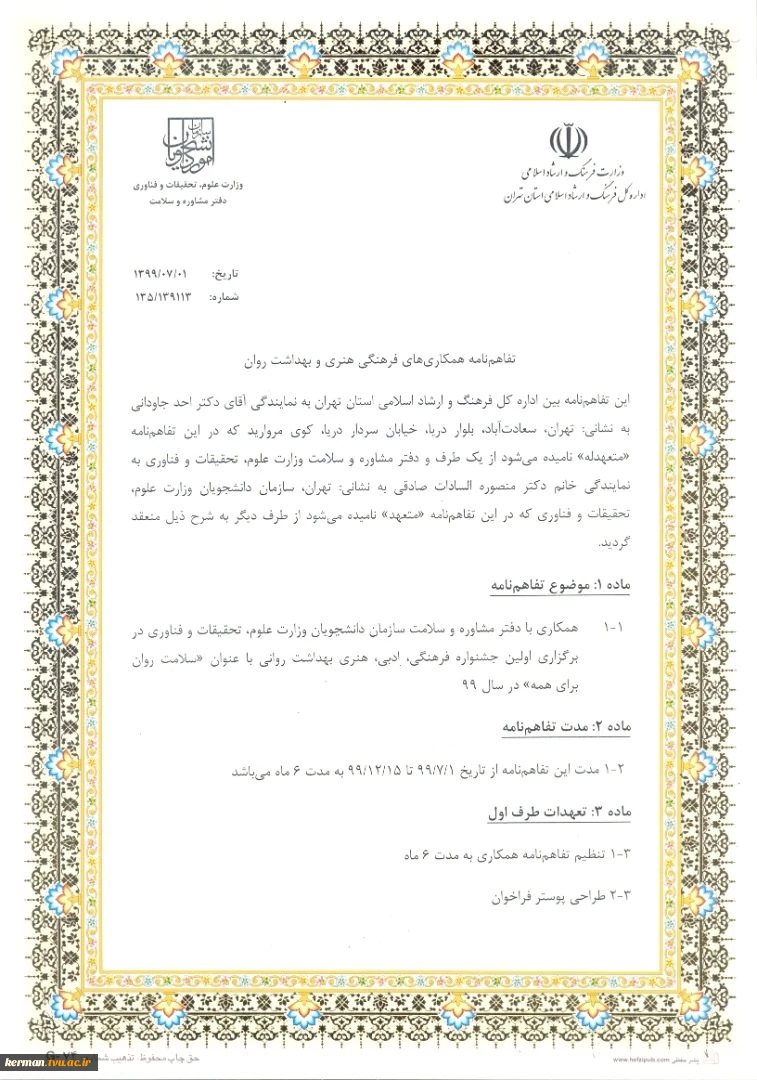 وزارت فرهنگ و ارشاد اسلامی
اداره کل فرهنگ و ارشاد اسلامی استان تهران
سازمان
امور دانشجویان
وزارت علوم، تحقیقات و فناوری
دفتر مشاوره و سلامت
تاریخ: ۱۳۹۹/۰۷/۰۱
شماره: ۱۳۵/۱۳۹۱۱۳
تفاهم‌نامه همکاری‌های فرهنگی هنری و بهداشت روان
این تفاهم‌نامه بین اداره کل فرهنگ و ارشاد اسلامی استان تهران به نمایندگی آقای دکتر احد جاودانی
به نشانی: تهران، سعادت‌آباد، بلوار دریا، خیابان سردار دریا، کوی مروارید که در این تفاهم‌نامه
«متعهدله» نامیده می‌شود از یک طرف و دفتر مشاوره و سلامت وزارت علوم، تحقیقات و فناوری به
نمایندگی خانم دکتر منصوره السادات صادقی به نشانی: تهران، سازمان دانشجویان وزارت علوم،
تحقیقات و فناوری که در این تفاهم‌نامه «متعهد» نامیده می‌شود از طرف دیگر به شرح ذیل منعقد
گردید.
ماده ۱: موضوع تفاهم‌نامه
۱-۱ همکاری با دفتر مشاوره و سلامت سازمان دانشجویان وزارت علوم، تحقیقات و فناوری در
برگزاری اولین جشنواره فرهنگی، ادبی، هنری بهداشت روانی با عنوان «سلامت روان
برای همه» در سال ۹۹
ماده ۲: مدت تفاهم‌نامه
۱-۲ مدت این تفاهم‌نامه از تاریخ ۹۹/۷/۱ تا ۹۹/۱۲/۱۵ به مدت ۶ ماه می‌باشد
ماده ۳: تعهدات طرف اول
۱-۳ تنظیم تفاهم‌نامه همکاری به مدت ۶ ماه
۲-۳ طراحی پوستر فراخوان
www.hefzipub.com
حق چاپ محفوظ. تذهیب
kerman.tvu.ac.ir